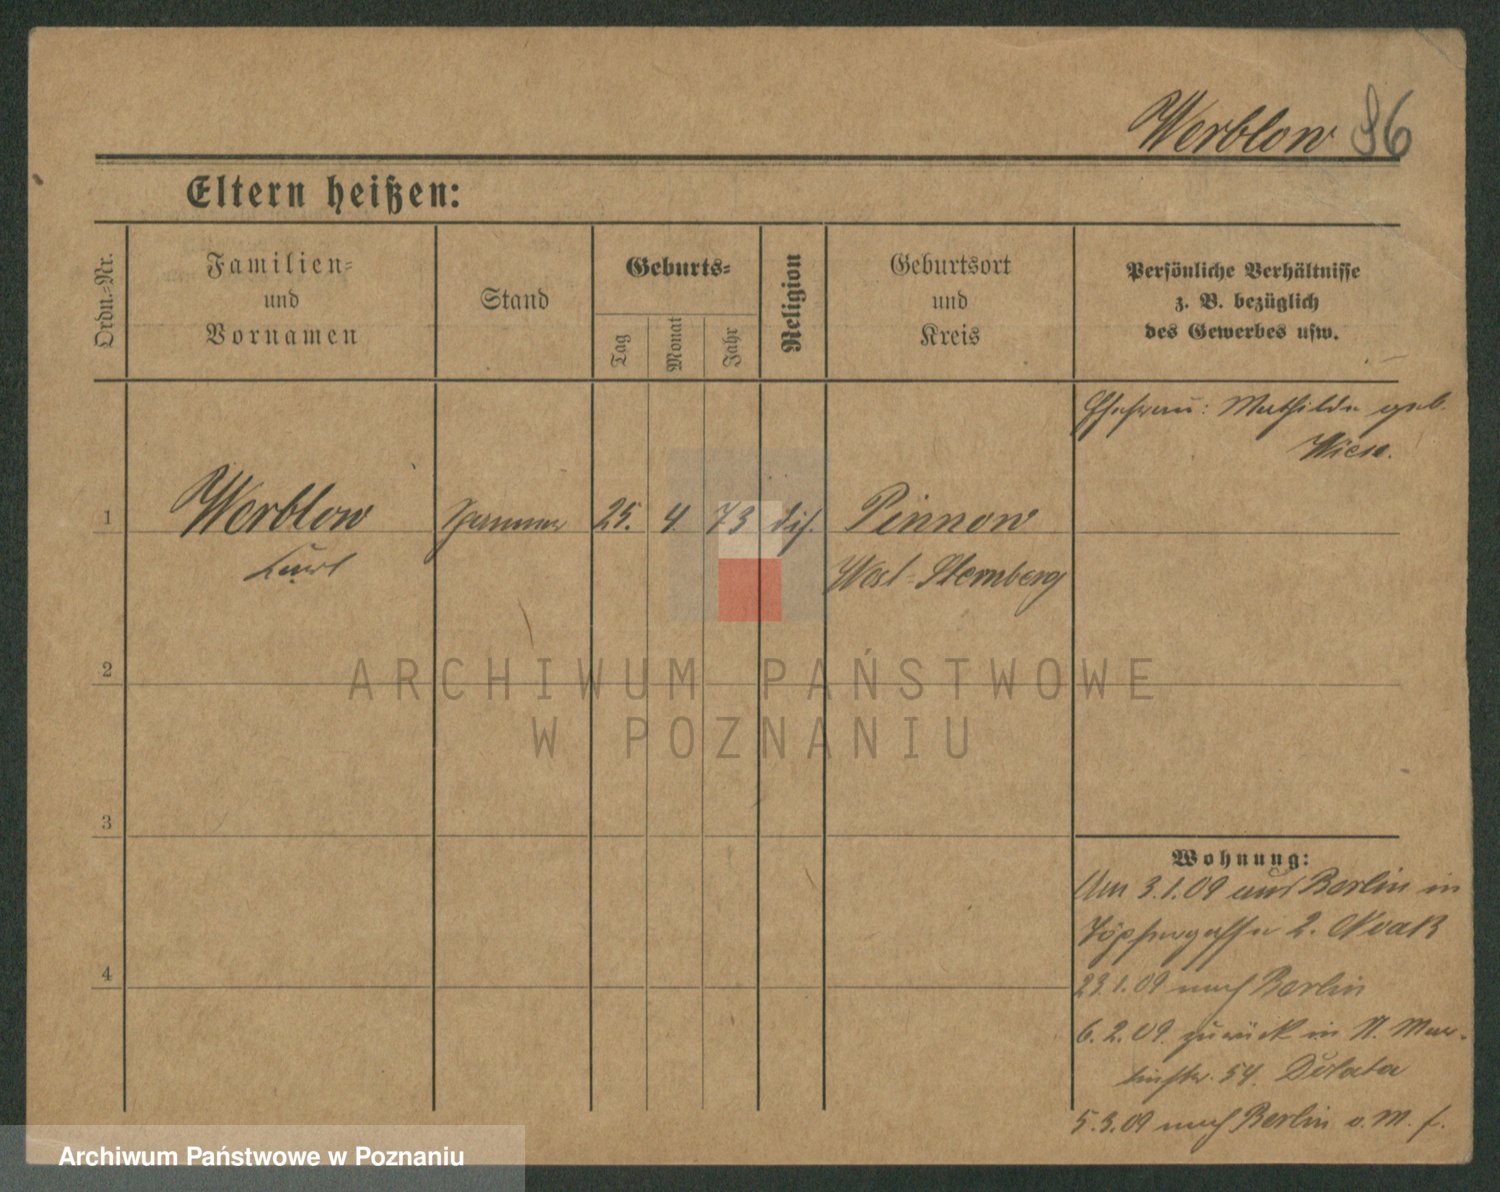 Werblow 86
Eltern heißen:
Ordn.-Nr.
Familien-
und
Vornamen
Stand
Geburts-
Tag
Monat
Jahr
Religion
Geburtsort
und
Kreis
Persönliche Verhältnisse
z. B. bezüglich
des Gewerbes usw.
Ehefrau: Mathilde geb.
Wiese.
1
Werblow
25. 4. 73 diss. Pinnow
Kurl
West-Sternberg
2
ARCHIWUM PAŃSTWOWE
W POZNANIU
3
Wohnung:
Am 3.1.09 aus Berlin in
Töpfergasse 2. Nvak
4
23.1.09 nach Berlin
6.2.09. zurück in St. Mar-
tinstr. 54.
5.3.09 nach Berlin o. M. f.
Archiwum Państwowe w Poznaniu